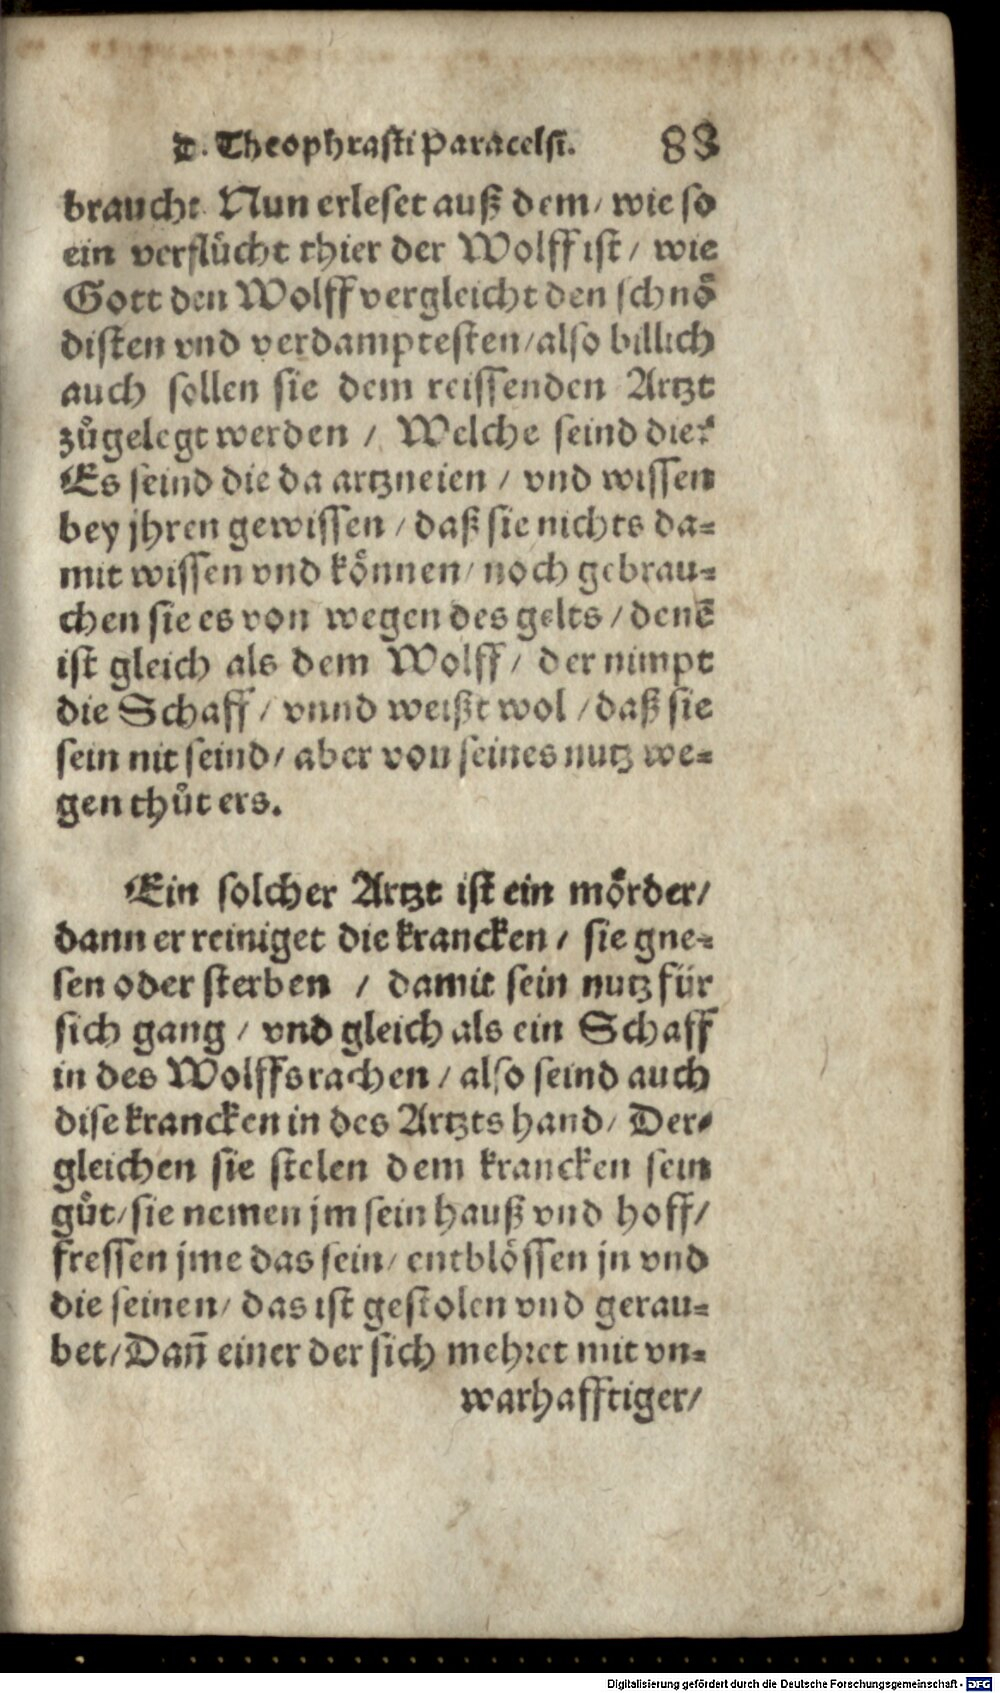 D. Theophrasti Paracelsi. 83
braucht Nun erleset auß dem / wie so
ein verflůcht thier der Wolff ist / wie
Gott den Wolff vergleicht den schnoͤ
disten vnd verdamptesten / also billich
auch sollen sie dem reissenden Artzt
zůgelegt werden / Welche seind die?
Es seind die da artzneien / vnd wissen
bey jhren gewissen / daß sie nichts da⸗
mit wissen vnd koͤnnen / noch gebrau⸗
chen sie es von wegen des gelts / denē
ist gleich als dem Wolff / der nimpt
die Schaff / vnnd weißt wol / daß sie
sein nit seind / aber von seines nutz we⸗
gen thůt ers.
Ein solcher Artzt ist ein moͤrder /
dann er reiniget die krancken / sie gne⸗
sen oder sterben / damit sein nutz für
sich gang / vnd gleich als ein Schaff
in des Wolffs rachen / also seind auch
dise krancken in des Artzts hand / Der⸗
gleichen sie stelen dem krancken sein
gůt / sie nemen jm sein hauß vnd hoff /
fressen jme das sein / entbloͤssen jn vnd
die seinen / das ist gestolen vnd gerau⸗
bet / Dañ einer der sich mehret mit vn⸗
warhafftiger /
Digitalisierung gefördert durch die Deutsche Forschungsgemeinschaft - DFG